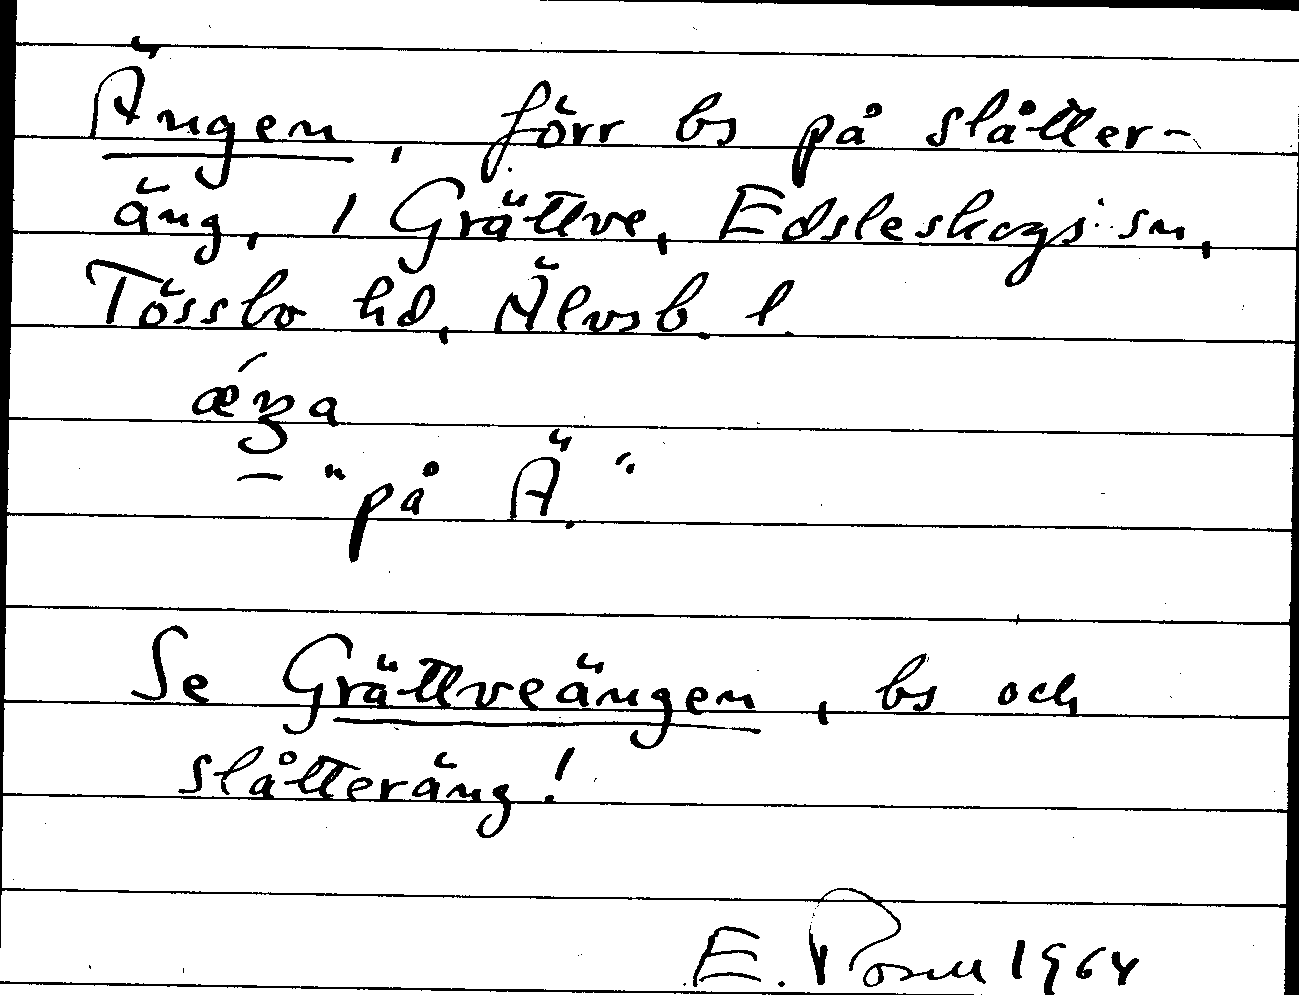 Ängen, förr bs på slåtter-
äng, 1 Grättve, Edsleskogs sn,
Tössbo hd, Älvsb. l.
ǽŋa
– "på Ä."
Se Grättveängen, bs och
slåtteräng!
E. 1964